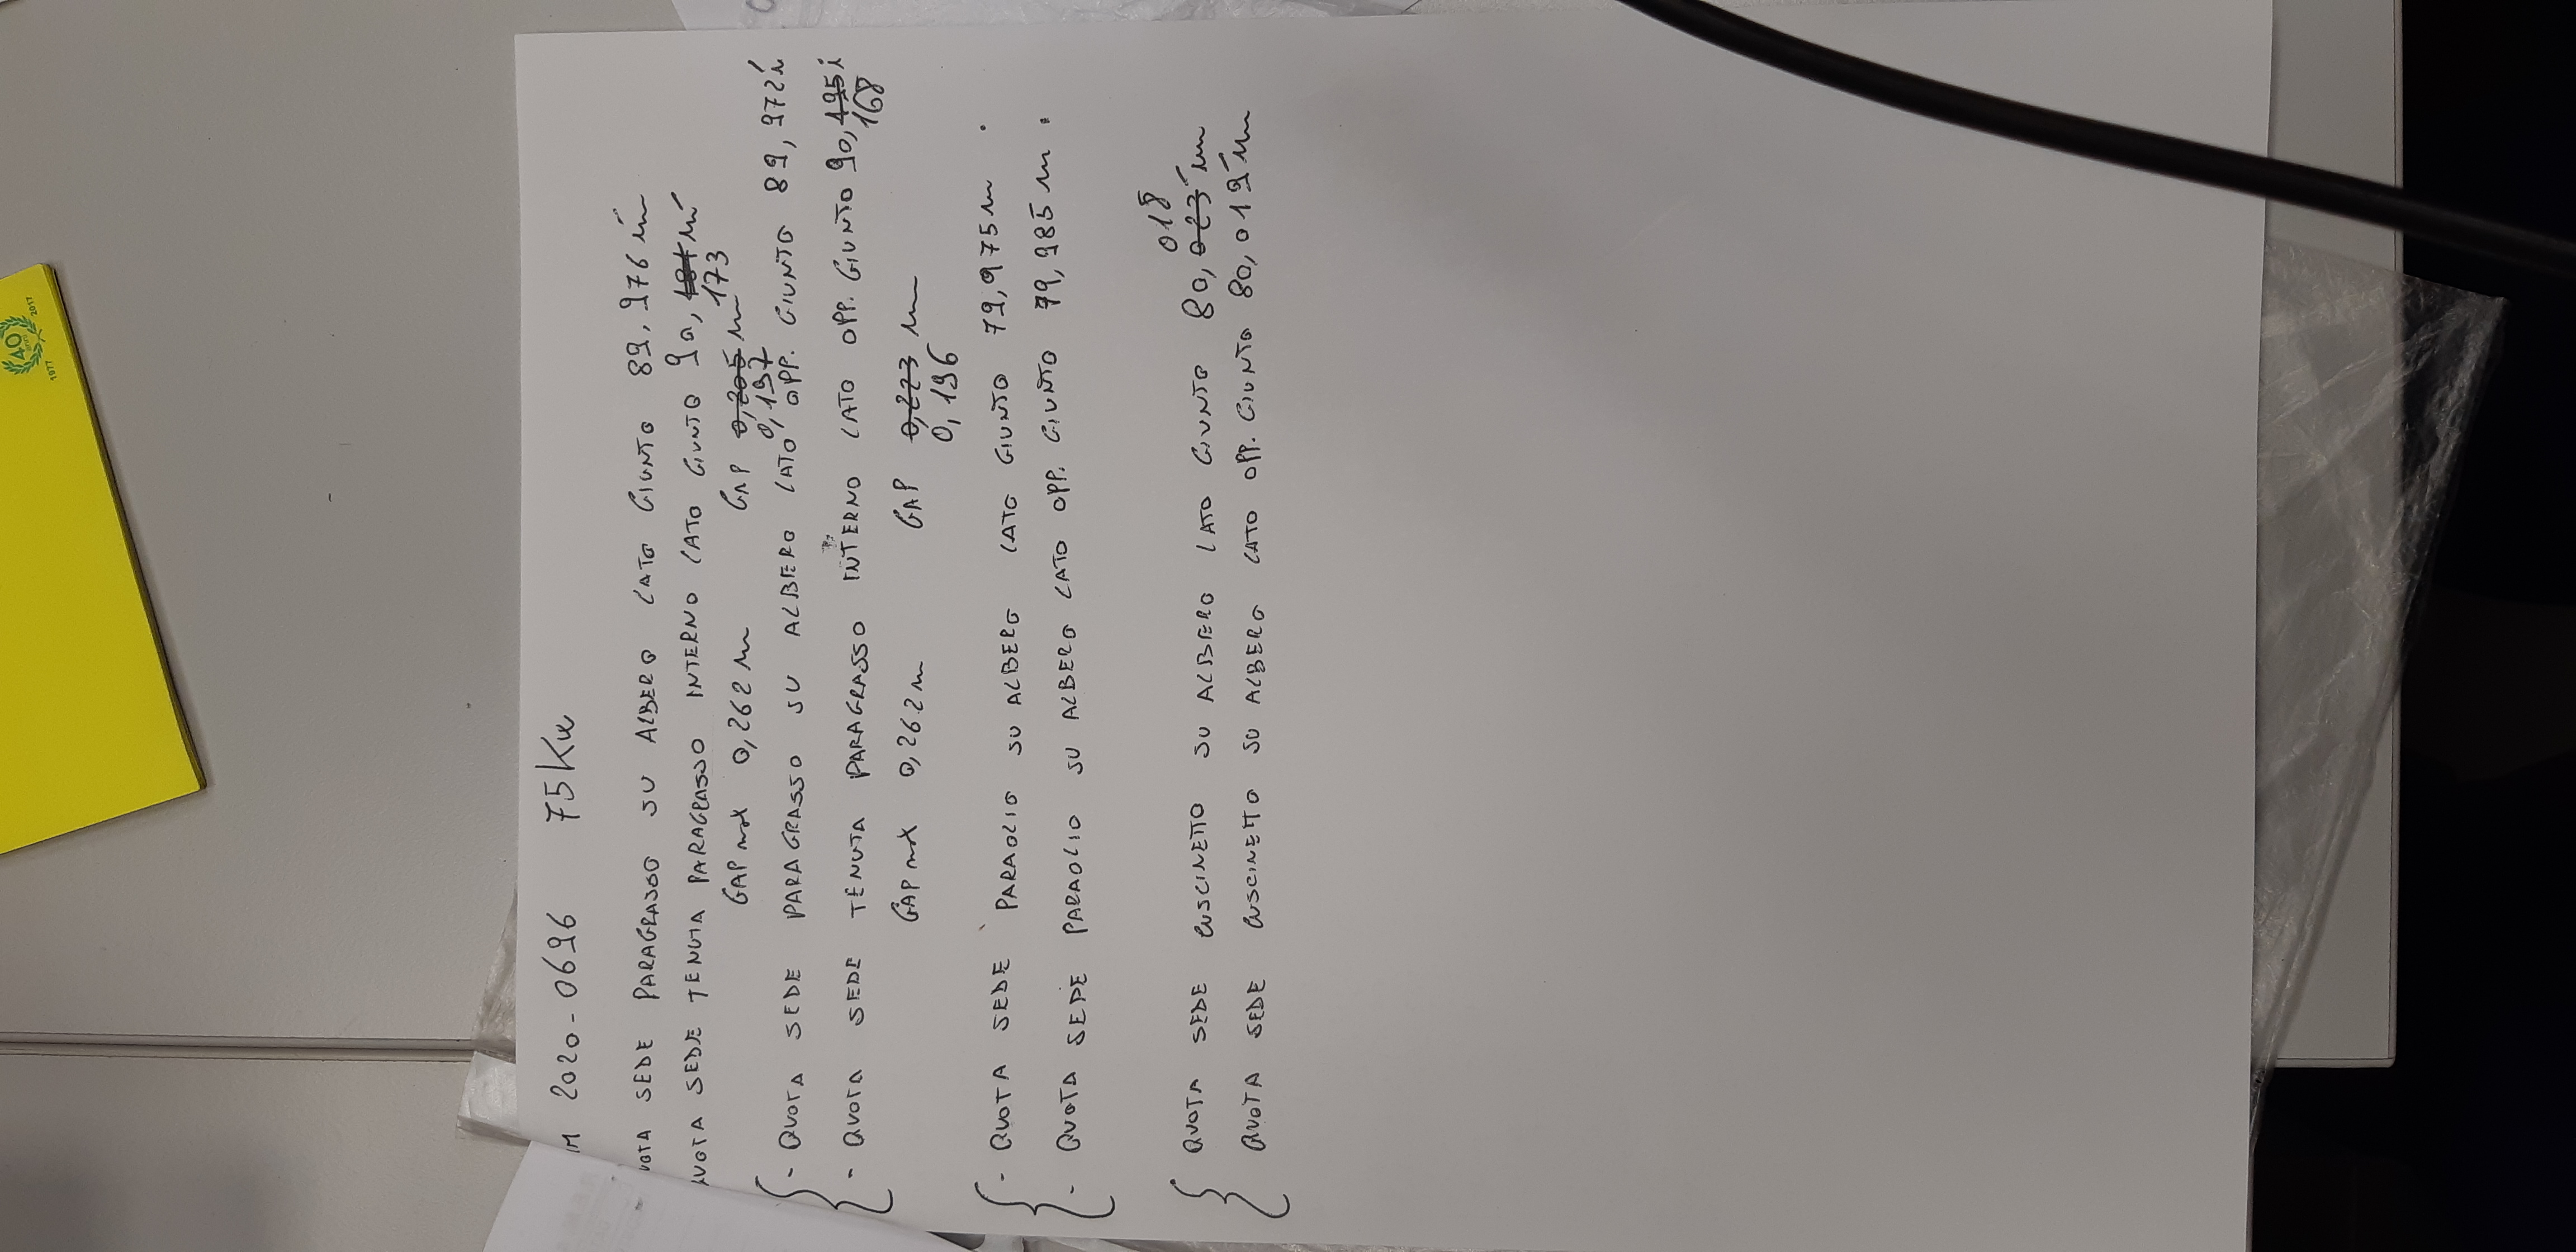 M 2020-0696 75KW
UOTA SEDE PARAGRASSO SU ALBERO LATO GIUNTO 89,976 m
QUOTA SEDE TENUTA PARAGRASSO INTERNO LATO GIUNTO 90, m
173
GAP max 0,262 m GAP 0,205 m
0,197
- QUOTA SEDE PARAGRASSO SU ALBERO LATO OPP. GIUNTO 89,972
- QUOTA SEDE TENUTA PARAGRASSO INTERNO LATO OPP. GIUNTO 90,195
168
GAP max 0,262 m GAP 0,223 m
0,196
- QUOTA SEDE PARAOLIO SU ALBERO LATO GIUNTO 79,975 m
- QUOTA SEDE PARAOLIO SU ALBERO LATO OPP. GIUNTO 79,985 m
018
QUOTA SEDE CUSCINETTO SU ALBERO LATO GIUNTO 80,023 m
QUOTA SEDE CUSCINETTO SU ALBERO LATO OPP. GIUNTO 80,019 m
40
1977 2017